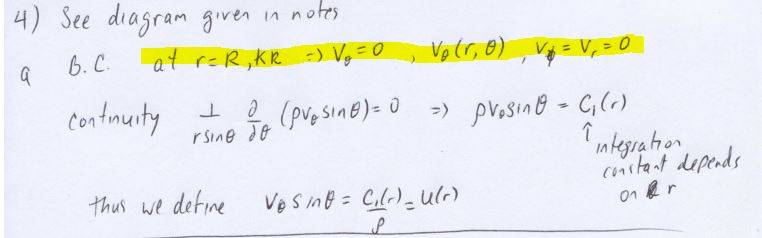 4) See diagram given in notes
a B.C. at r=R, KR => Vθ=0 , Vθ(r, θ) , Vϕ = Vr = 0
continuity 1/(r sinθ) ∂/∂θ (ρvθ sinθ) = 0 => ρvθ sinθ = C₁(r)
↑
integration
constant depends
on r
thus we define Vθ sinθ = C₁(r)/ρ = u(r)